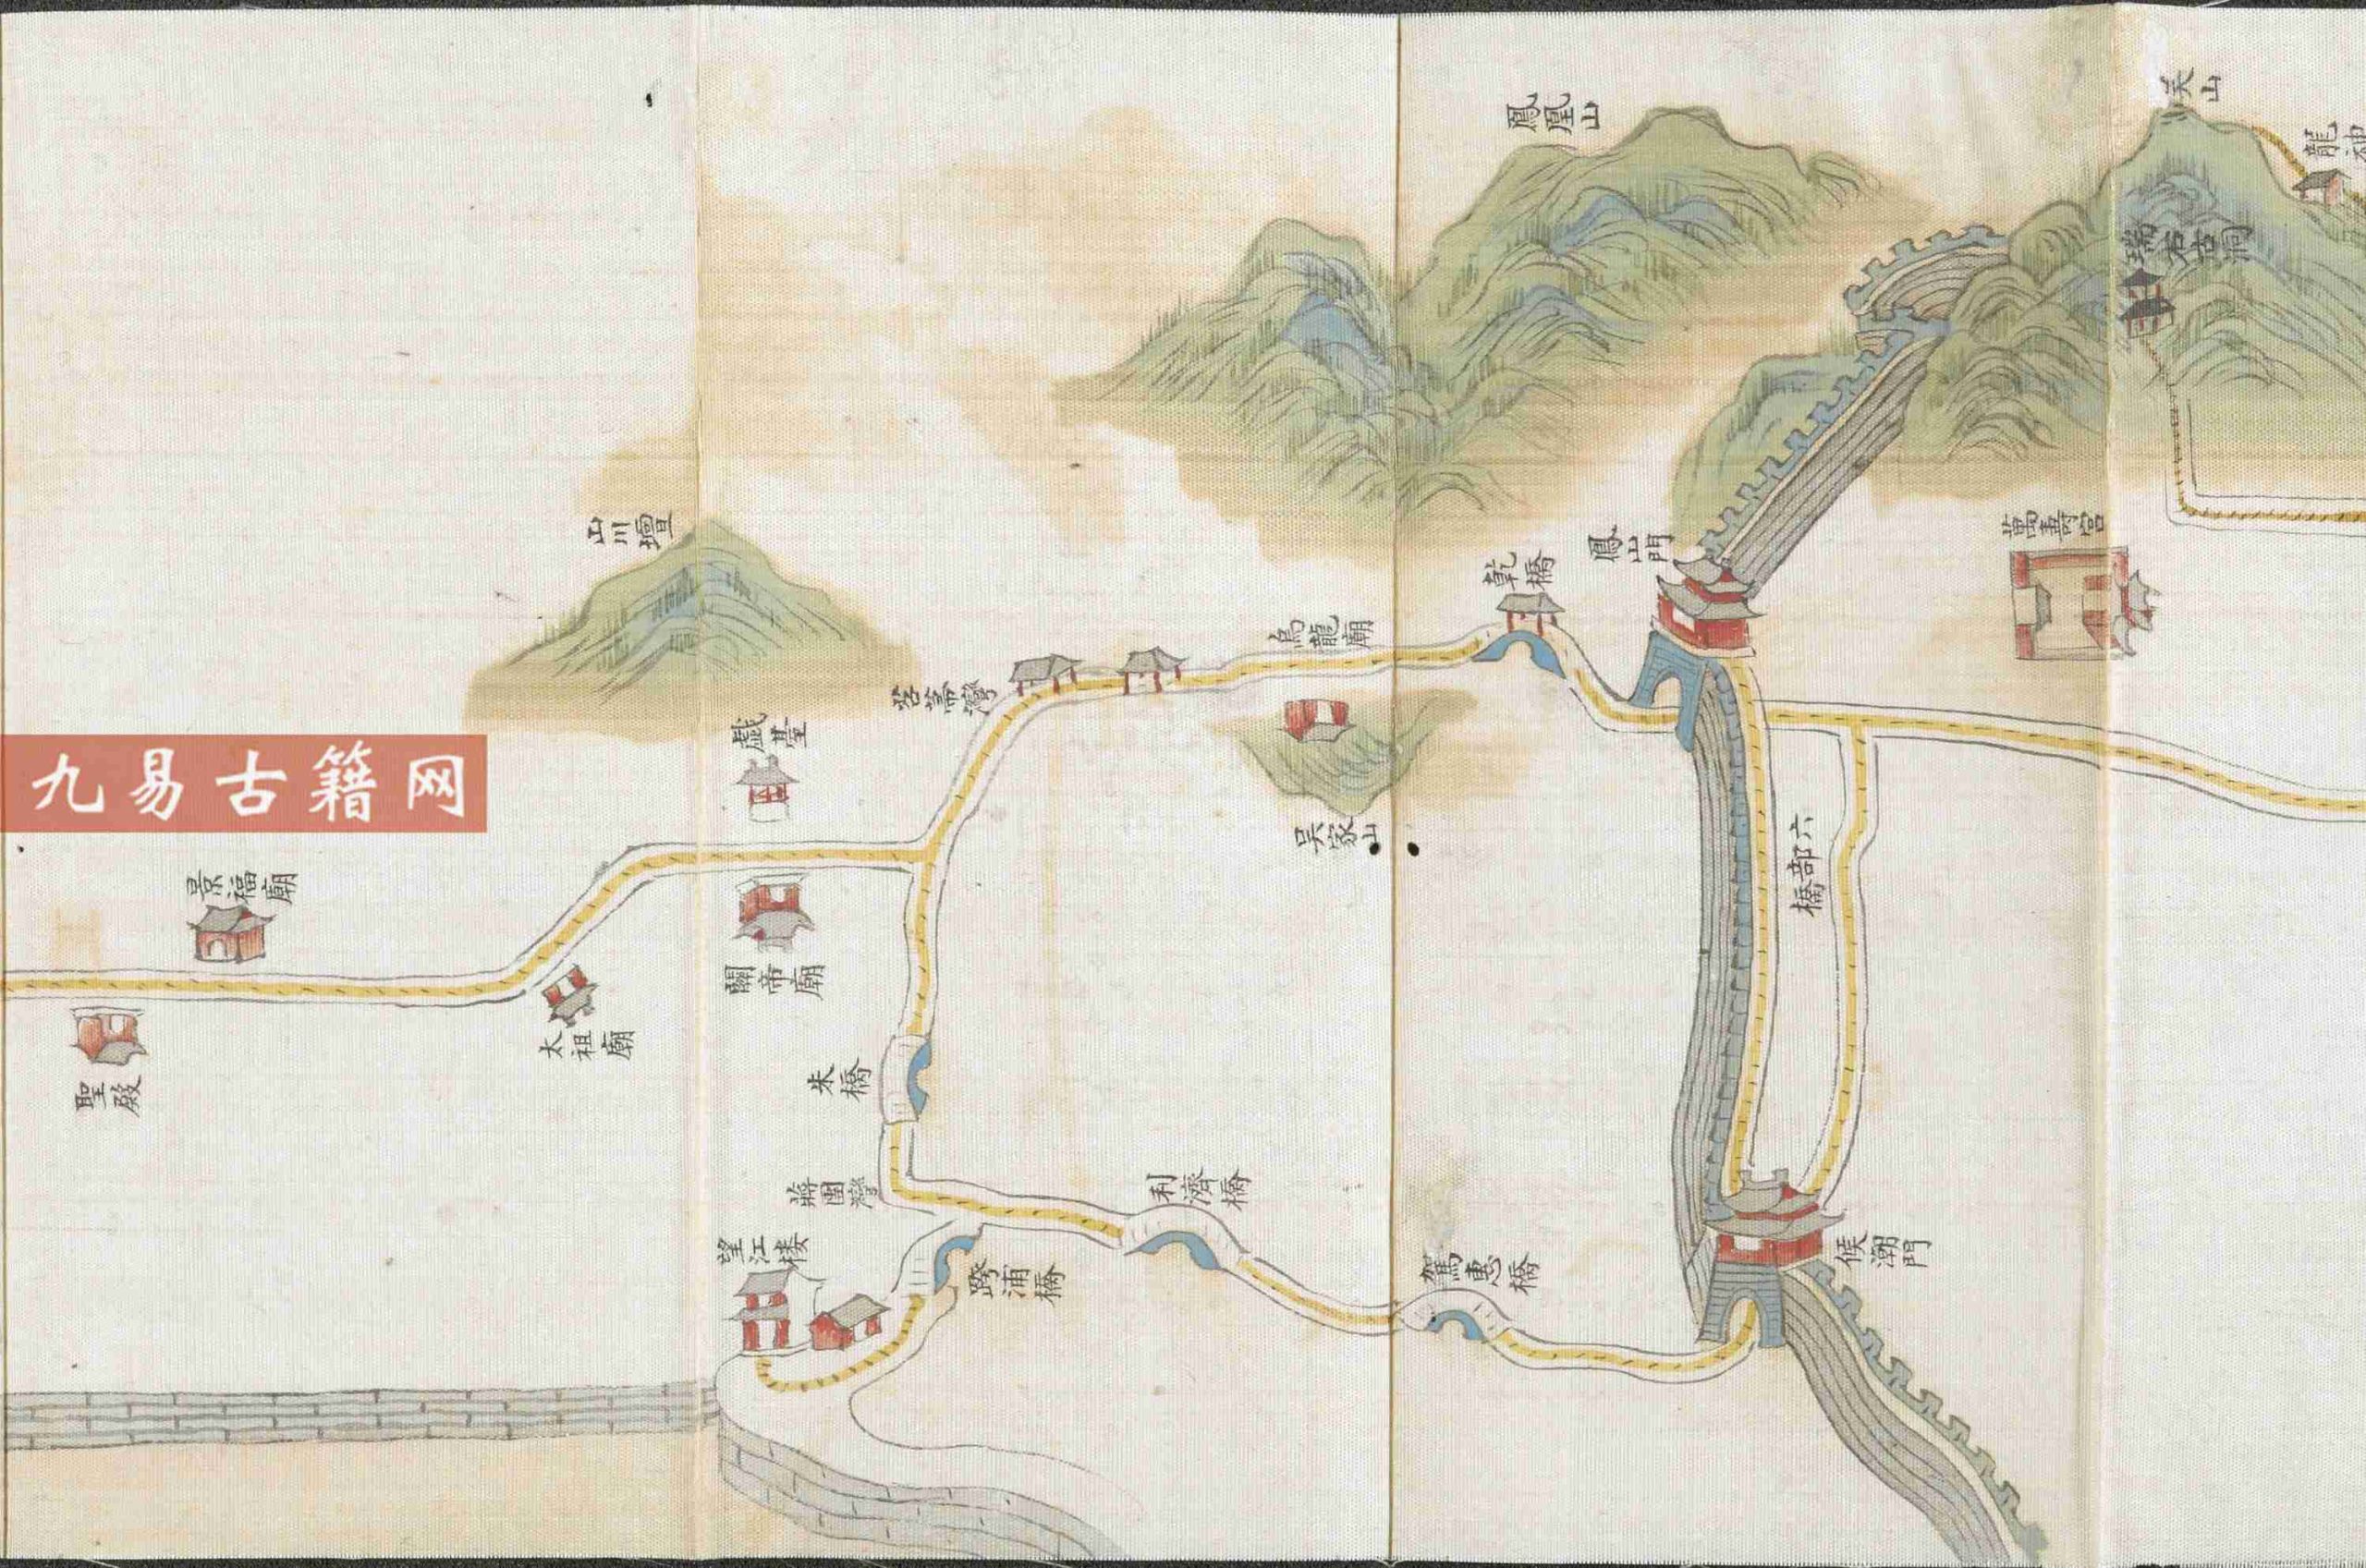 鳳凰山
吴山
龍神
瑞石古洞
山川壇
萬壽宮
鳳山門
乾橋
烏龍廟
苕箒灣
戲臺
九易古籍网
吴家山
六部橋
景福廟
關帝廟
太祖廟
聖殿
朱橋
蔣團灣
利濟橋
望江楼
跨浦橋
駕惠橋
候潮門